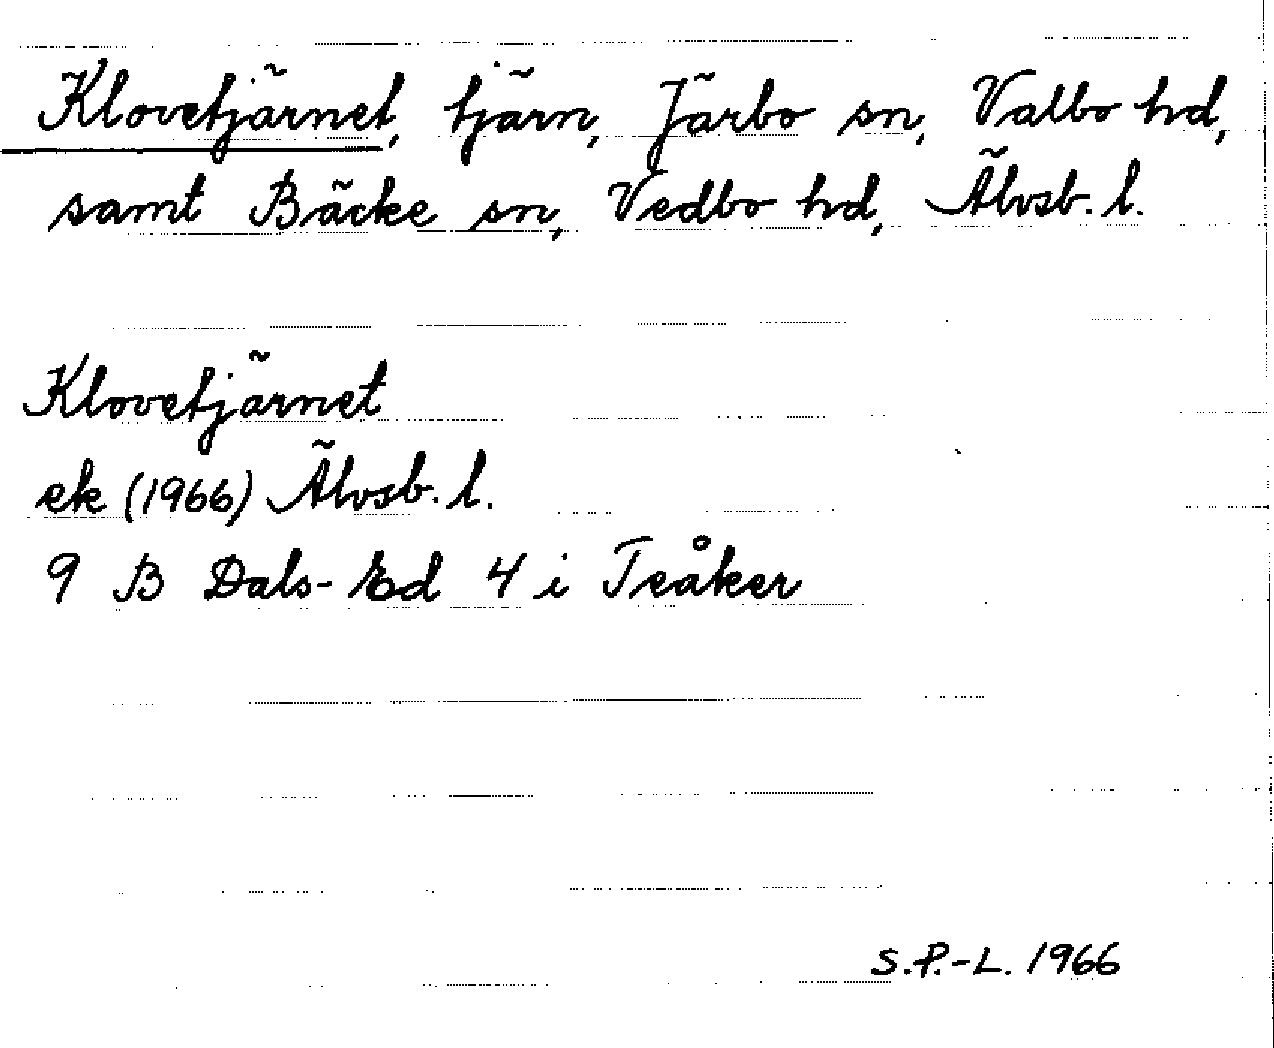 Klovetjärnet, tjärn, Järbo sn, Valbo hd,
samt Bäcke sn, Vedbo hd, Älvsb. l.
Klovetjärnet
ek (1966) Älvsb. l.
9 B Dals-Ed 4 i Teåker
S.P.-L. 1966